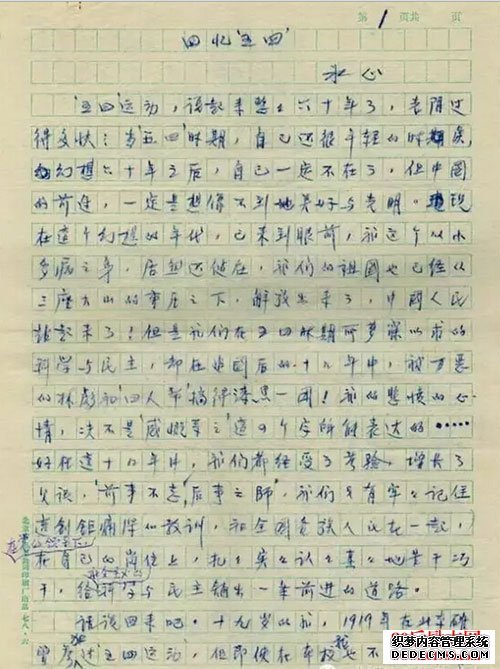 第1页共 页
回忆'五四'
冰心
'五四'运动，说起来整整六十年了，光阴过
得多快！当'五四'时期，自己还很年轻的时候，
幻想六十年之后，自己一定不在了，但中国
的前途，一定是想像不到地美好与光明。现
在这个幻想的年代，已来到眼前，我这个从小
多病之身，居然还健在，我们的祖国也已经从
三座大山的重压之下，解放出来了，中国人民
站起来了！但是我们在五四时期所梦寐以求的
科学与民主，却在建国后的十八年中，被万恶
的林彪和'四人帮'搞得漆黑一团！我的悲愤的心
情，决不是'感慨万千'这四个字所能表达的……
好在这十八年中，我们都经受了考验，增长了
见识，'前事不忘，后事之师'，我们只有牢牢记住
这创钜痛深的教训，和全国各族人民在一起，
在自己的岗位上，扎扎实实认认真真地苦干巧
干，给科学与民主铺出一条前进的道路。
话说回来吧。十九岁的我，1919年在北京确
曾参过五四运动，但即使在学校也不
织梦内容管理系统
DEDECMS.COM